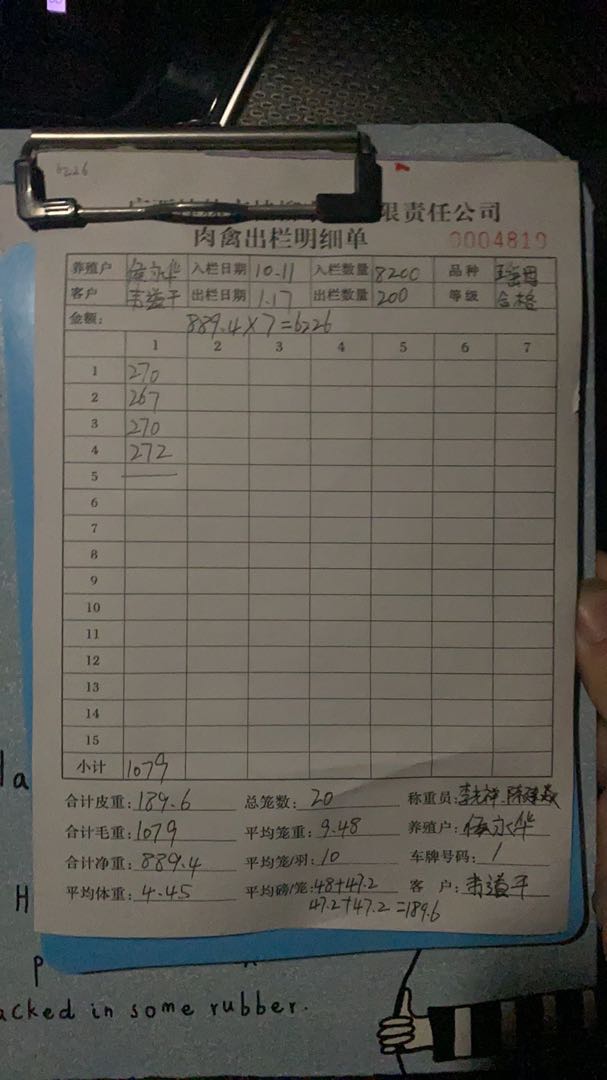 6226
限责任公司
肉禽出栏明细单 0004819
养殖户 入栏日期 10.11 入栏数量 8200 品种
客户 韦道干 出栏日期 1.17 出栏数量 200 等级 合格
金额: 889.4×7=6226
1 2 3 4 5 6 7
1 270
2 267
3 270
4 272
5
6
7
8
9
10
11
12
13
14
15
小计 1079
合计皮重: 189.6 总笼数: 20 称重员:
合计毛重: 1079 平均笼重: 9.48 养殖户:
合计净重: 889.4 平均笼/羽: 10 车牌号码: /
平均体重: 4.45 平均磅/笼: 48+47.2 客 户: 韦道干
47.2+47.2=189.6
acked in some rubber.